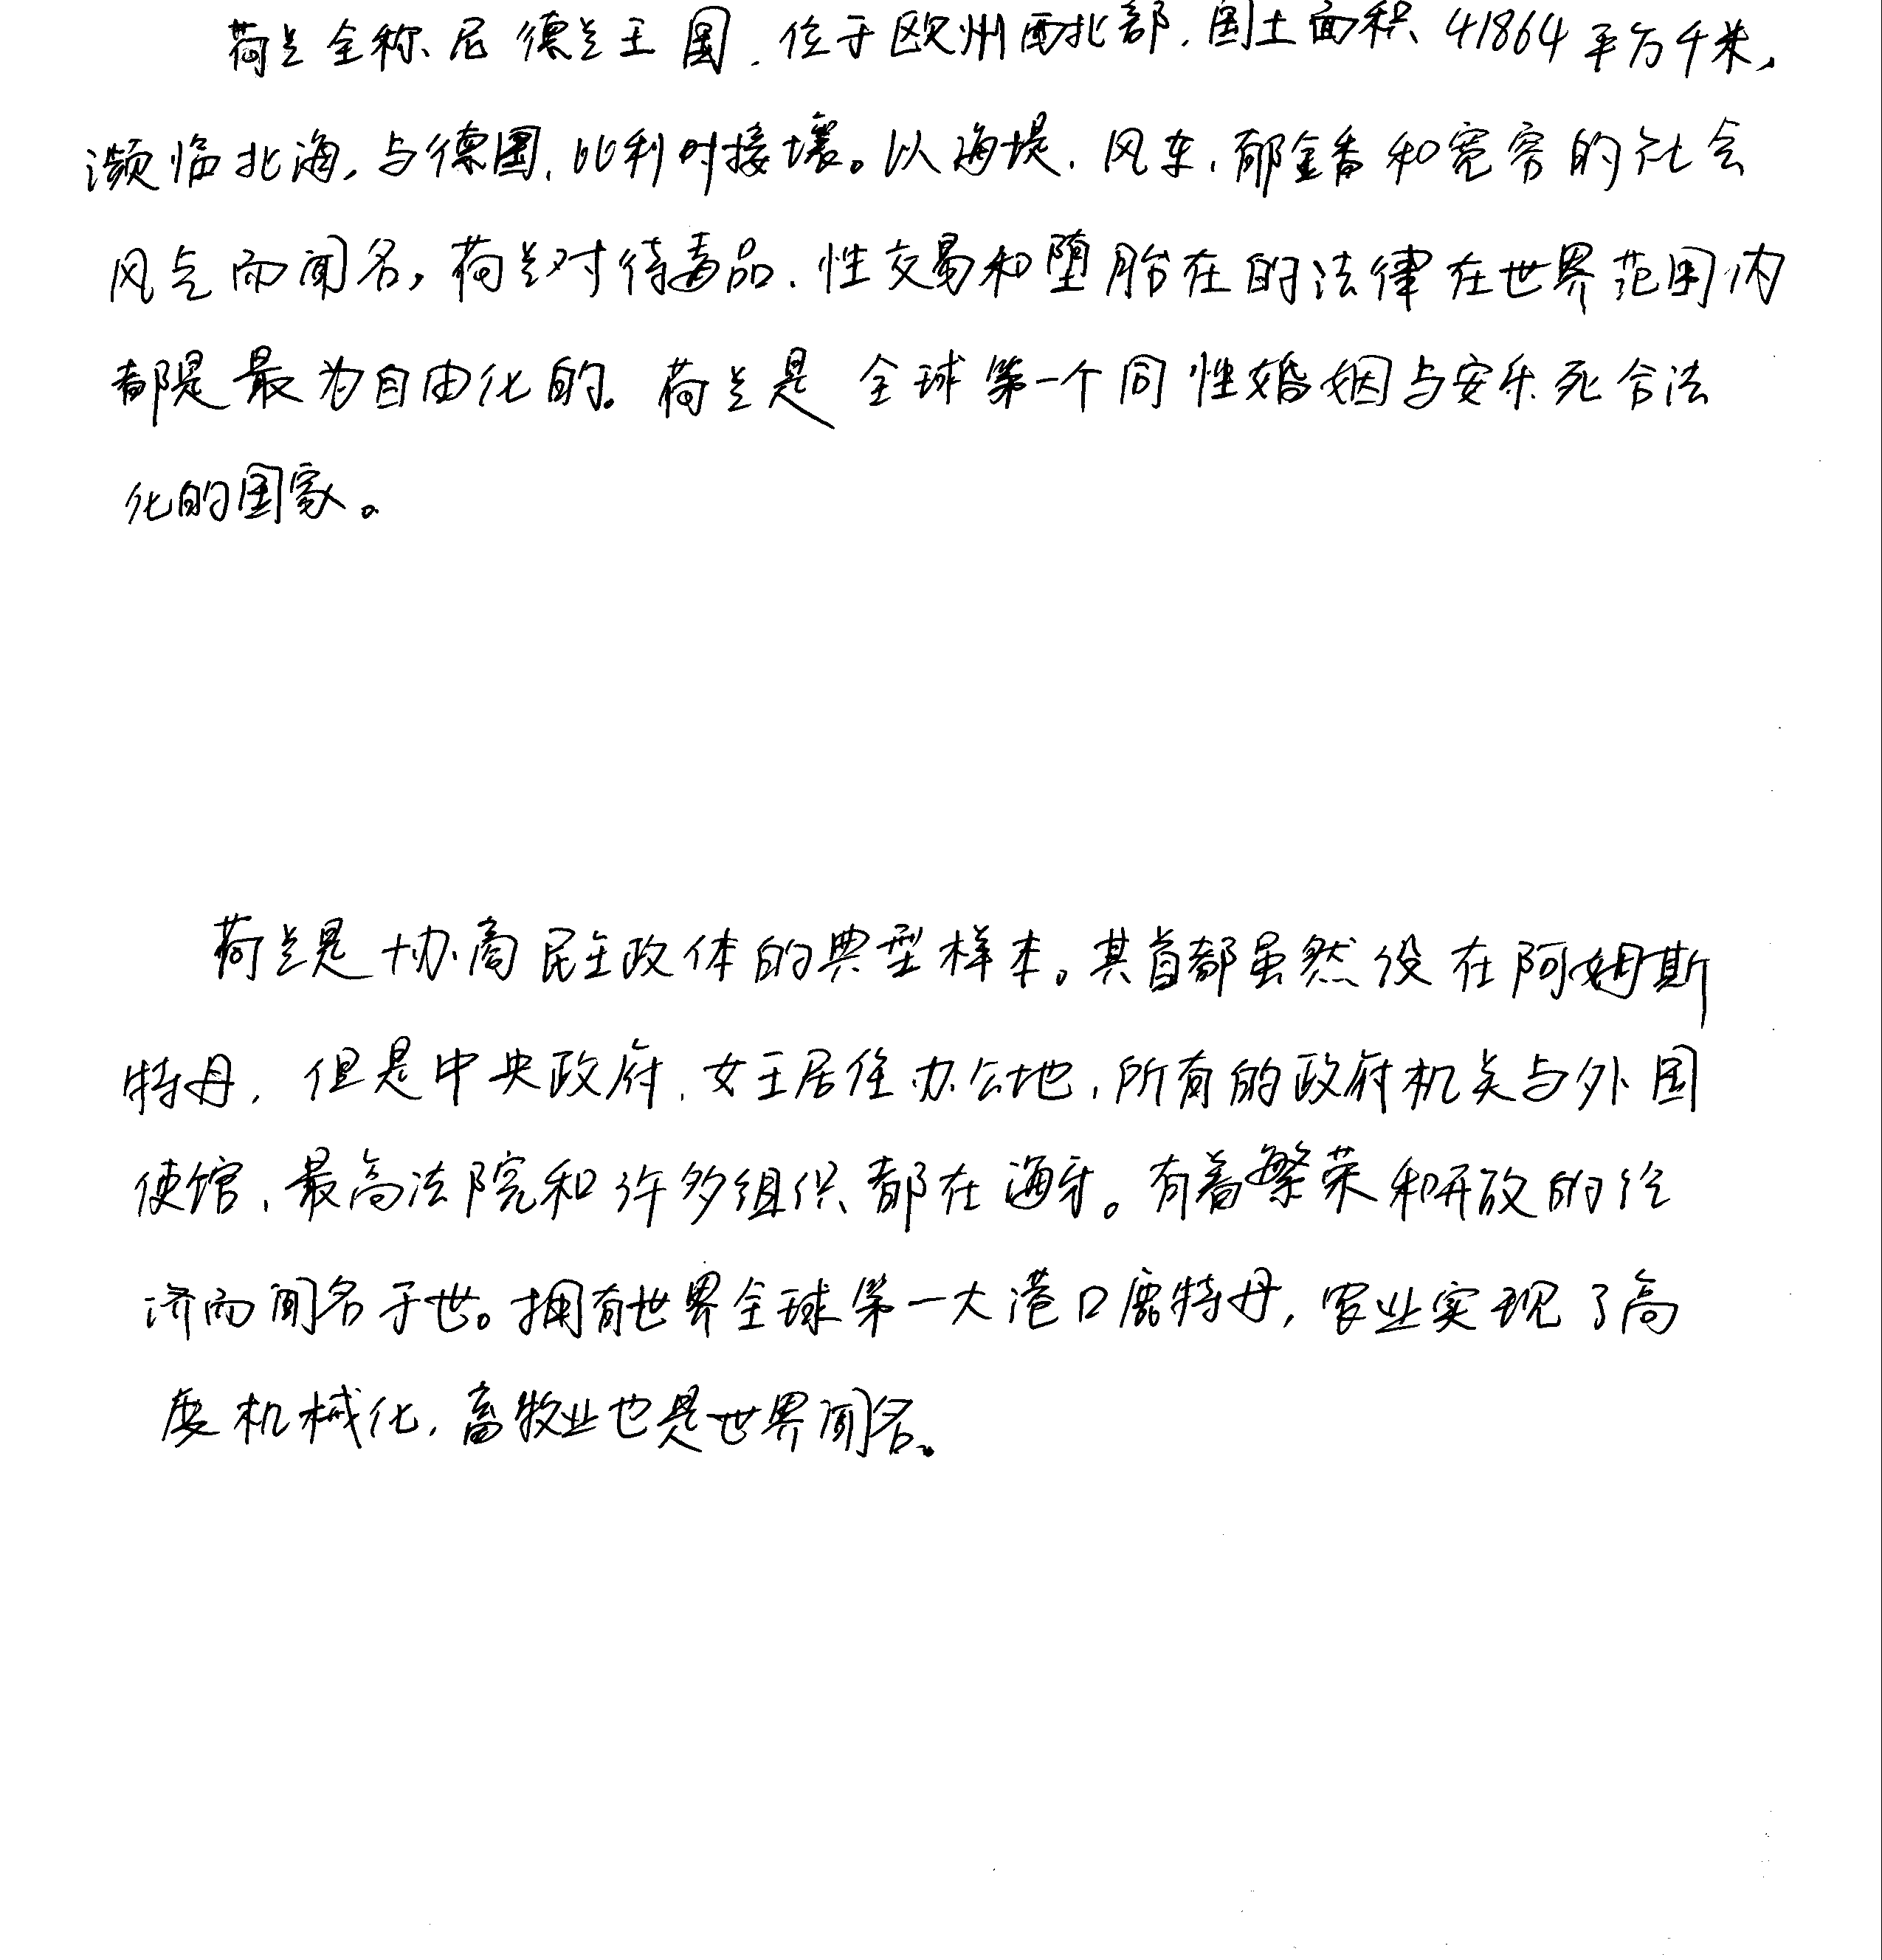 荷兰全称尼德兰王国，位于欧州西北部，国土面积41864平方千米，
濒临北海，与德国、比利时接壤。以海堤、风车、郁金香和宽容的社会
风气而闻名，荷兰对待毒品、性交易和堕胎在的法律在世界范围内
都是最为自由化的。荷兰是全球第一个同性婚姻与安乐死合法
化的国家。
荷兰是协商民主政体的典型样本。其首都虽然设在阿姆斯
特丹，但是中央政府、女王居住办公地，所有的政府机关与外国
使馆、最高法院和许多组织都在海牙。有着繁荣和开放的经
济而闻名于世。拥有世界全球第一大港口鹿特丹，农业实现了高
度机械化，畜牧业也是世界闻名。